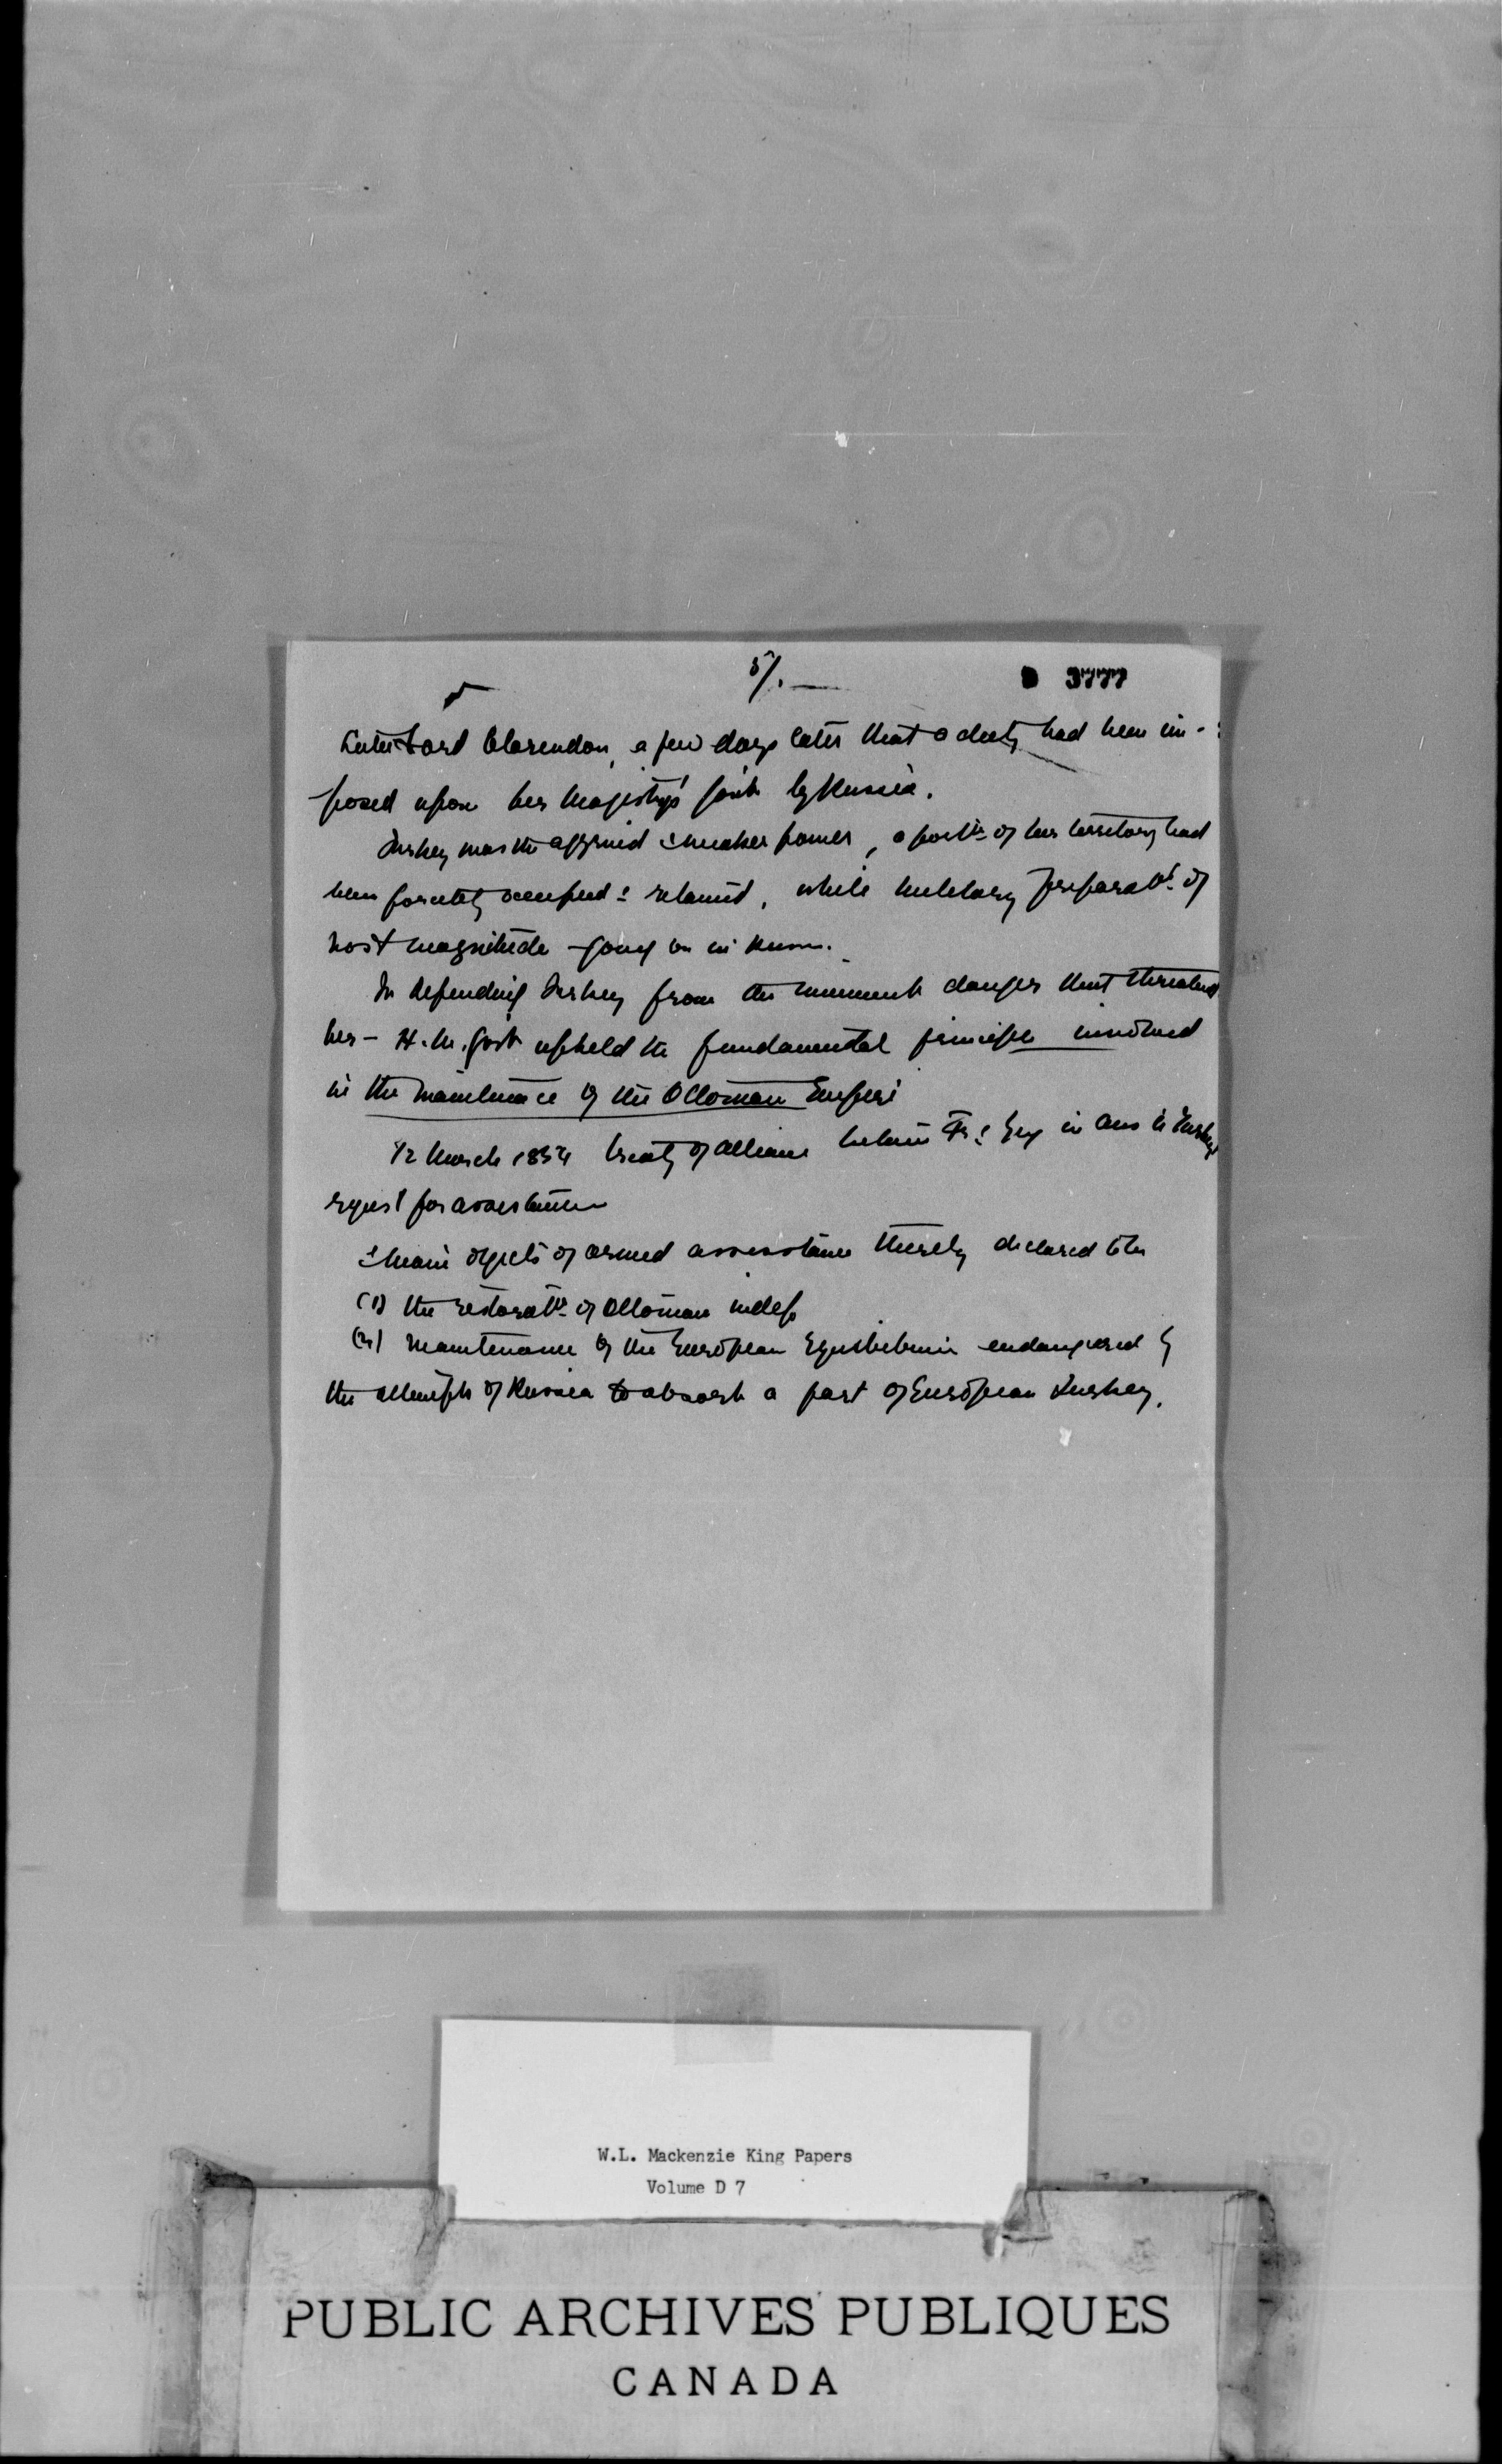 5/. —
D 3777
Lord Clarendon, a few days later that a duty had been im-
posed upon her Majesty's Gov't by Russia.
Turkey was the aggrieved & weaker power, a port'n of her territory had
been forcibly occupied & retained, while military preparat'ns of
vast magnitude going on in Russia.
In defending Turkey from the imminent danger that threatened
her — H.M. Gov't upheld the fundamental principle involved
in the maintenance of the Ottoman Empire
12 March 1854 treaty of alliance between Fr. & Eng in ans to Turkey's
request for assistance
& main objects of armed assistance thereby declared to be
(1) the restorat'n of Ottoman indep
(2) maintenance of the European Equilibrium endangered by
the attempts of Russia to absorb a part of European Turkey.
W.L. Mackenzie King Papers
Volume D 7
PUBLIC ARCHIVES PUBLIQUES
CANADA